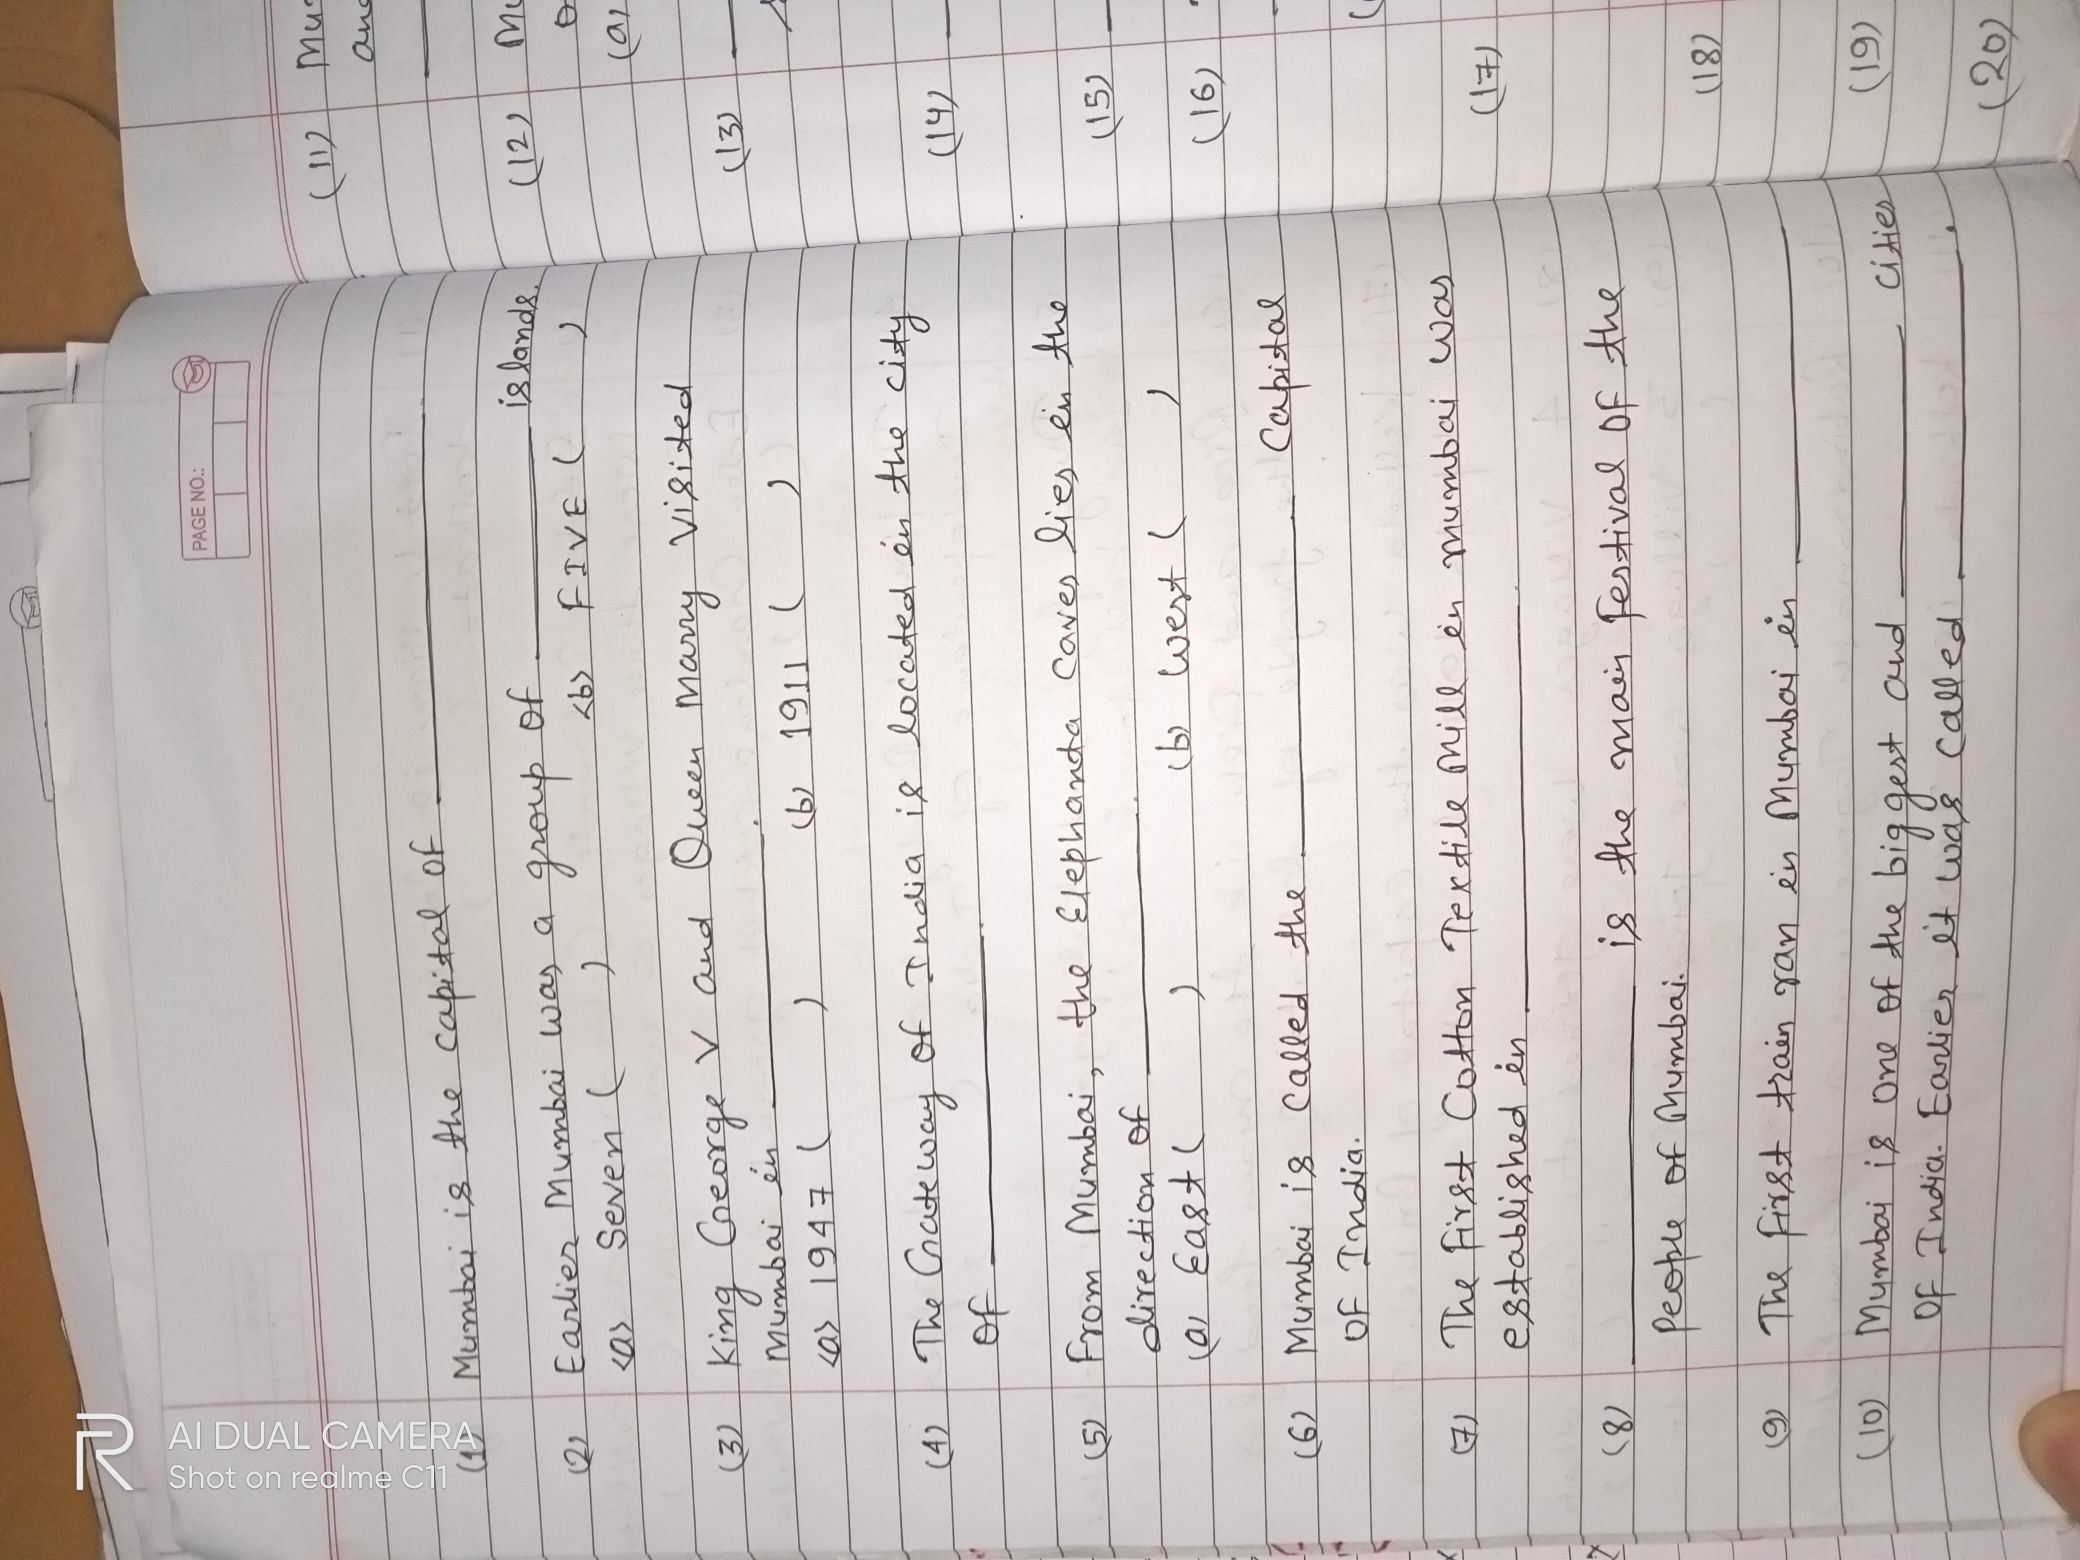 PAGE NO.:
(1) Mumbai is the capital of
(2) Earlier Mumbai was a group of islands.
(a) Seven ( ) (b) FIVE ( )
(3) King George V and Queen Marry visited
Mumbai in .
(a) 1947 ( ) (b) 1911 ( )
(4) The Gateway of India is located in the city
of
(5) From Mumbai, the Elephanta caves lies in the
direction of .
(a) East ( ) (b) West ( )
(6) Mumbai is called the Capital
of India.
(7) The first Cotton Textile Mill in Mumbai was
established in .
(8) is the main festival of the
People of Mumbai.
(9) The first train ran in Mumbai in
(10) Mumbai is one of the biggest and cities
of India. Earlier it was called .
(11)
(12)
(a)
(13)
(14)
(15)
(16)
(17)
(18)
(19)
(20)
R AI DUAL CAMERA
Shot on realme C11